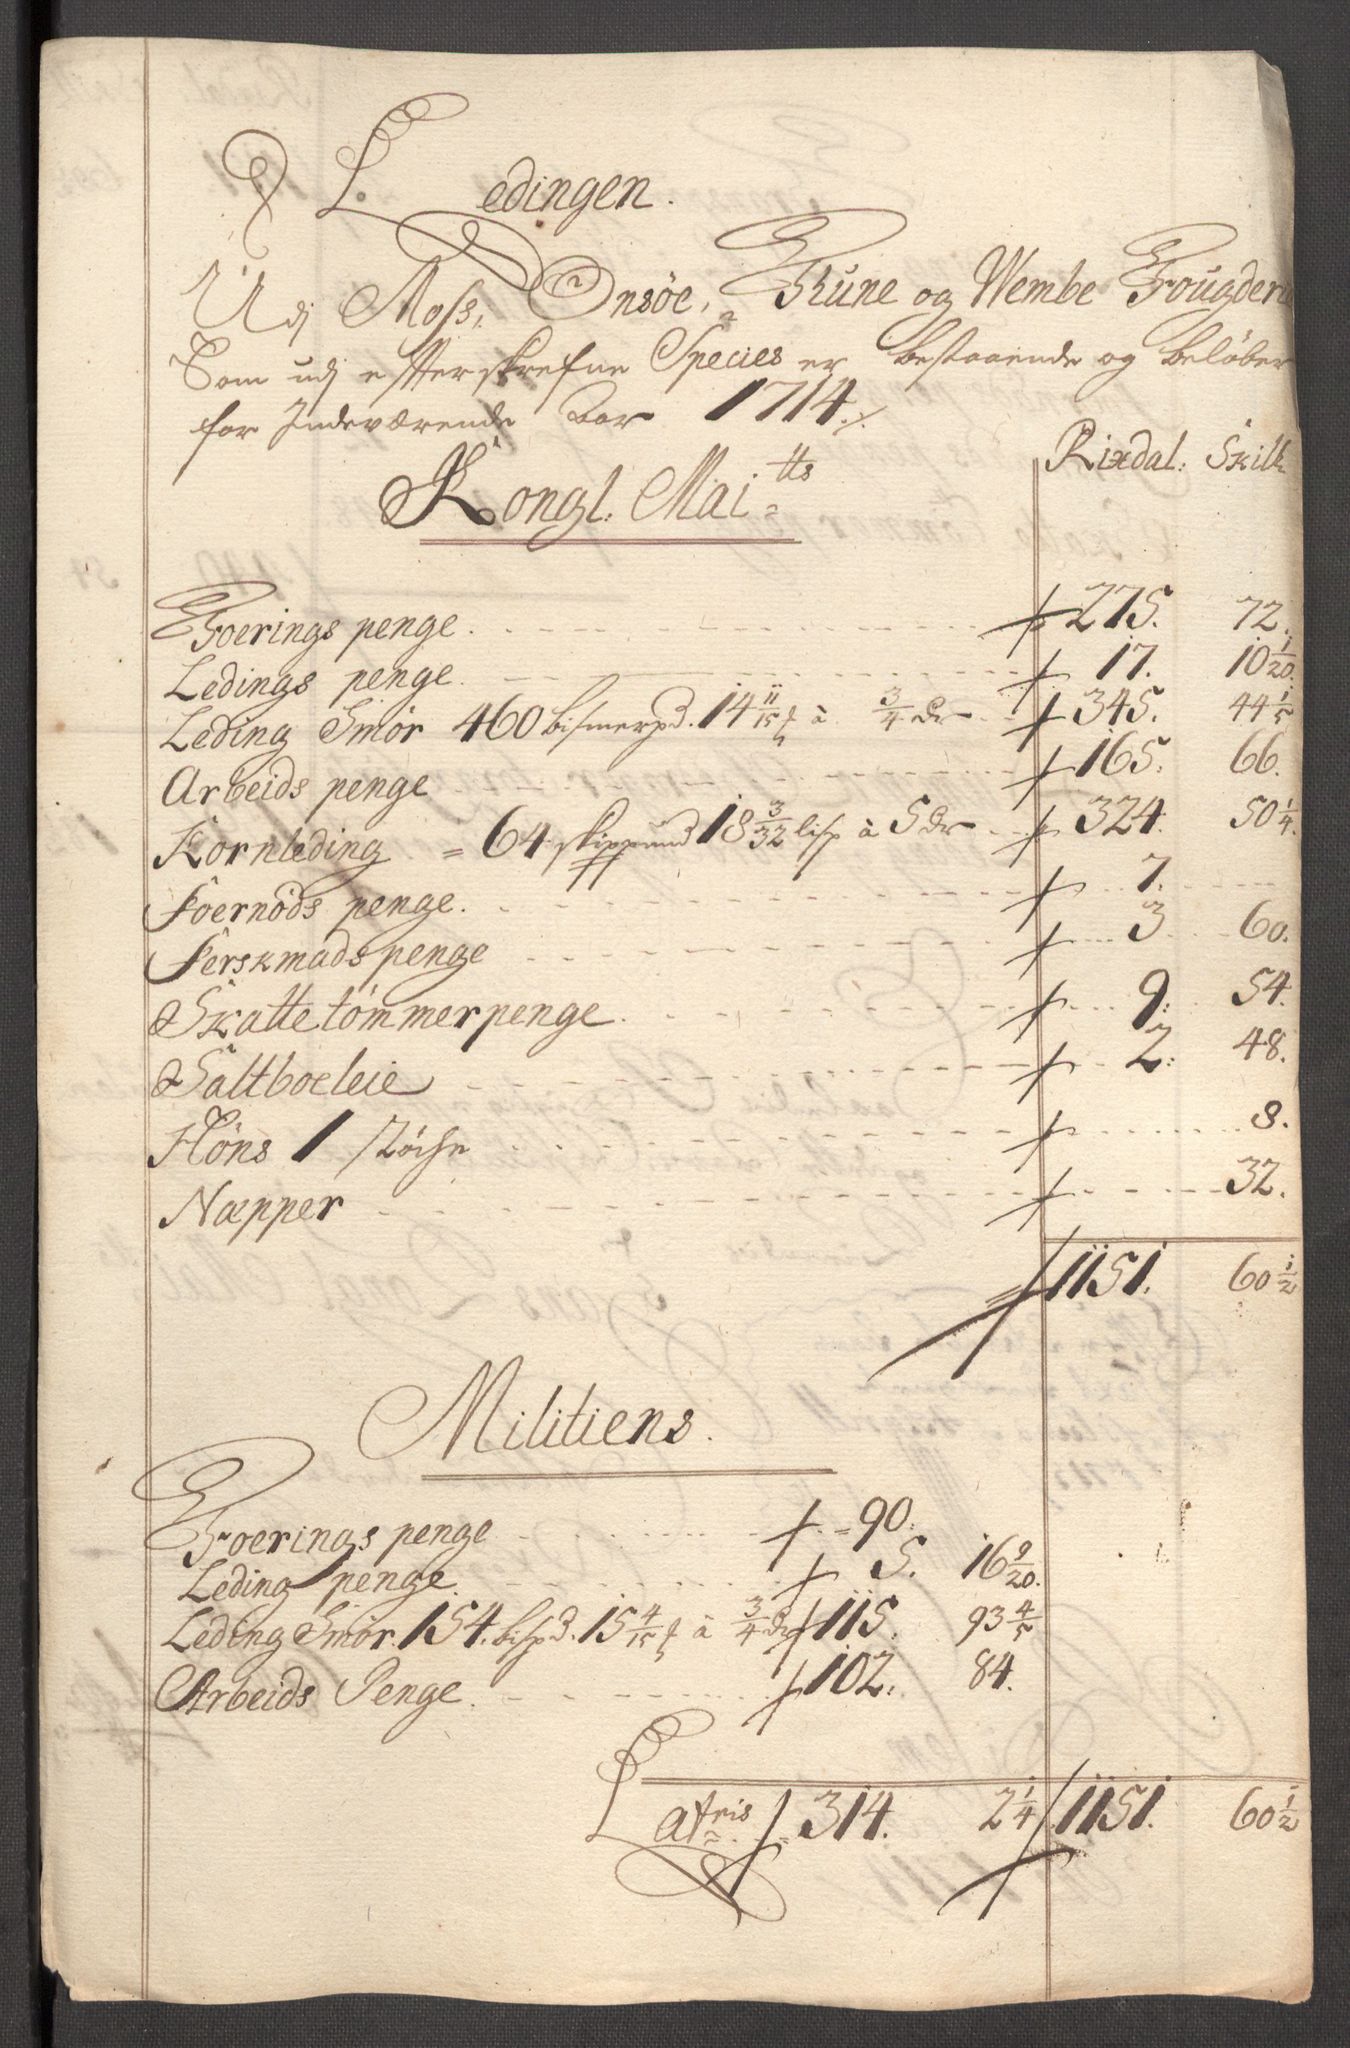 Ledingen.
Udj Moss, Onsøe, Thune og Wembe Fougderie
Som udj effterskrefne Species er bestaaende og beløber
for Indeværende Aar 1714 ./.
Rixdal: Skill:
Kongl: Mai^tts
Foerings penge. 275. 72.
Ledings penge. 17. 10 1/20.
Leding Smör 460 bismerpd. 14 11/15 ℔ à 3/4 dr 345. 44 1/5
Arbeids penge 165. 66.
Kornleding = 64 skippund 18 3/32 lisp à 5 dr 324. 50 1/4.
Foernöds penge. 7.
Ferskmads penge 3 60.
Skattetömmerpenge. 9. 54.
Saltboeleie 2. 48.
Höns 1 8.
Næpper 32.
1151. 60 1/2
Militiens.
Foerings penge 90.
Leding penge. 5. 16 9/20.
Leding Smör. 154. bispd. 15 4/15 ℔ à 3/4 dr 115. 93 4/5
Arbeids Penge. 102. 84.
Latris 314. 2 1/4 1151. 60 1/2